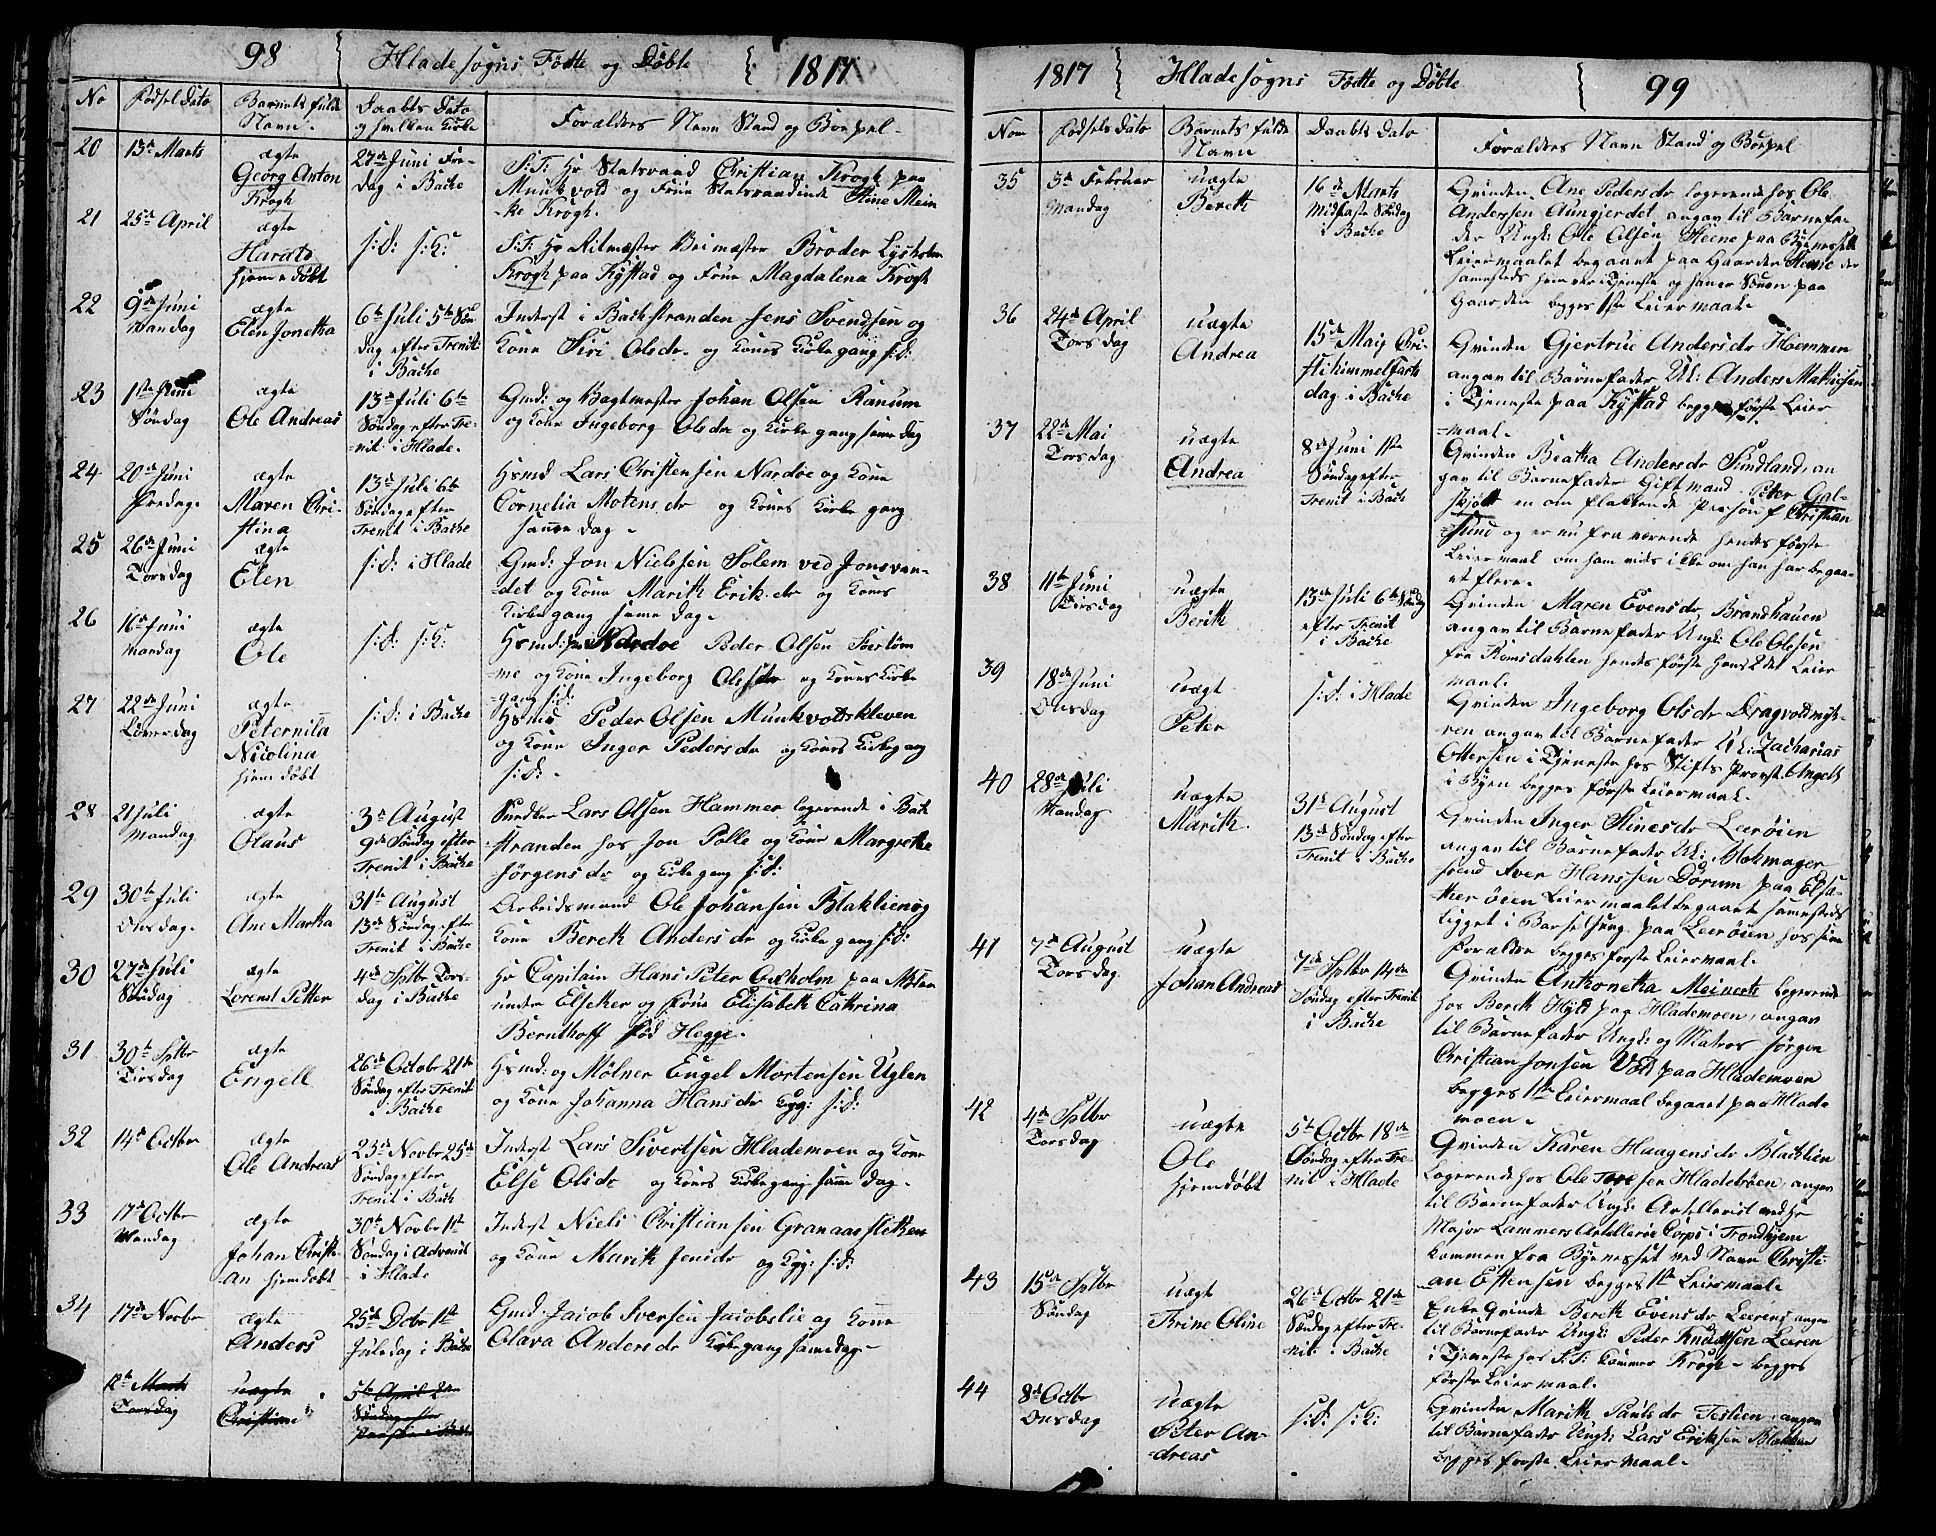 98 Hlade sogns Fødte og Døbte 1817
No Fødsel Dato Barnets fulde Navn. Daabts Dato og hvilken Kirke Forældres Navn Stand og Boepel
20 13de Marts ægte Georg Anton Krogh 27de Juni Fredag i Bache
S:T: Hr Statsraad Christian Krogh paa
Munkvold og Frue Statsraadinde Stine Mein
-ke Krogh.
21 25de April ægte Harald hjemedøbt s:d: s:K:
S:T: Hr Ritmester Broder Lysholm
Krogh paa Kystad og Frue Magdalena Krogh
22 9de Juni Mandag ægte Elen Jonetta 6te Juli 5te Søndag efter Trenit: i Bache
Inderst i Bachstranden Jens Svendsen og
Kone Siri Olsdr. og Kones Kirkegang s:d:
23 1ste Juni Søndag ægte Ole Andreas 13de Juli 6te Søndag efter Trenit: i Hlade.
Gmd: og Bogtmester Johan Olsen Ranum
og Kone Ingeborg Olsdr og Kirkegang samme Dag
24 20de Juni Fredag. ægte Maren Christina 13de Juli 6te Søndag efter Trenit i Bache
Hsmd Lars Christensen Nardoe og Kone
Cornelia Motensdr og Kones Kirkegang
samme dag.
25 26de Juni Torsdag ægte Elen s:d: i Hlade
Gmd: Jon Nielssen Solem ved Jonsvan-
-det og Kone Marith Erikdr og Kones
Kirkegang samme Dag.
26 16de Juni Mandag ægte Ole s:d: s:K:
Hsmd: paa Nardoe Peder Olsen
og Kone Ingeborg Olsdr og Kones Kirke
gang s:d:
27 22de Juni Løverdag ægte Peternilla Nicolina hjemdøbt s:d: i Bache
Hsmd Peder Olsen Munkvoldskleven
og Kone Inger Pedersdr og Kones Kirkegang
s:d:
28 21 Juli Mandag ægte Olaus 3de August 9de Søndag efter Trenit i Bache
Snedker Lars Olsen Hammer logerende i Bak
stranden hos Jon Polle og Kone Margrethe
Jørgensdr og Kirkegang s:d:
29 30te Juli Onsdag. ægte Ane Martha 31te August 13de Søndag efter Trenit i Bache
Arbeidsmand Ole Johansen Blaklien og
Kone Bereth Andersdr og Kirkegang s:d:
30 27de Juli Søndag ægte Lorenst Petter 4de Sptbr Torsdag i Bache
Hr Capitain Hans Peter Oxholm paa
under Elseker og Frue Elisabeth Cathrina
Bernthoff fød Hegge.
31 30te Sptbr Tirsdag ægte Engell 26de Octobr 21de Søndag efter Trenit i Bache
Hsmd: og Mølner Engel Mortensen Uglen
og Kone Johanna Hansdr Kgg: s:d:
32 14de Octbr ægte Ole Andreas 23de Novbr 25de Søndag efter Trenit i Bach
Inderst Lars Sivertsen Hlademoen og Kone
Else Olsdr og Kones Kirkegang samme Dag.
33 17de Octbr Mandag ægte Johan Christian hjemdøbt 30te Novbr 1st Søndag i Advendt i Hlade
Inderst Niels Christiansen Granaasfletken
og Kone Marith Jensdr og Kgg: s:d:
34 17de Novbr ægte Anders 25de Dcbr 1st Juledag i Bache
Gmd: Jacob Iversen Jacobslie og Kone
Olava Andersdr Kirkegang samme dag.
12te Marts Torsdag uægte Christine 5te April 2den Søndag efter Paaske i Bache
1817 Hlade sogns Fødte og Døbte 99
Nom Fødsels Dato Barnets fulde Navn Daabts Dato Forældres Navn Stand og Boepel
35 3de Februar Mandag uægte Bereth 16de Marts Midfaste Søndag i Bache
Qvinden Ane Pedersdr logerende hos Ole
Anderssen Aungjerdet, angav til Barnefa-
der Ungk: Ole Olsen Steene paa Bynesset
Leiermaalet begaaet paa Gaarden Steene der
sammesteds hun var i Tjeneste og han er Sønen paa
Gaarden begges 1ste Leiermaal.
36 24de April Torsdag uægte Andrea 15de Maij Christi himmelfarts dag i Bache
Qvinden Gjertrue Andersdr Hoemmen
angav til Barnefader Uk: Anders Mathisen
i Tjeneste paa Kystad begges første Leier
-maal.
37 22de Mai Torsdag uægte Andrea 8de Juni 1ste Søndag efter Trenit i Bach
Qvinden Beatha Andersdr Sundland, an
gav til Barnefader Gift mand Peter Gal-
skjøtt en om flakkende Person f Christian
-sund og er nu fraværende hendes første
Leiermaal om ham vids ikke om han har begaa-
-et flere.
38 11te Juni Tirsdag uægte Berith 13de Juli 6te Søndag efter Trenit i Bache
Qvinden Maren Evensdr Brandhauen
angav til Barnefader Ungk: Ole Olsen
fra Romsdahlen hendes første hans 2det Leier
maal.
39 18de Juni Onsdag uægt Peter s:d: i Hlade
Qvinden Ingeborg Olsdr Dragvoldmyh-
ren angav til Barnefader Uk: Zacharias
Ottersen i Tjeneste hos Stifts Provst Angell
i Byen begges første Leiermaal.
40 28de Juli Mandag uægte Marith. 31te August 13de Søndag efter Trenit i Bache
Qvinden Inger Stinesdr Leerøien
angav til Barnefader Uk: Blokmager
svend Aver Hanssen Dørum paa Elsa-
therøien Leiermaalet begaaet sammesteds
ligget i Barselseng paa Leerøien hos sine
Forældre begges første Leiermaal.
41 7de August Torsdag. uægte Johan Andreas 7de Sptbr 14de Søndag efter Trenit i Bache
Qvinden Anthonetha Meinertz logerende
hos Bereth Hyld paa Hlademoen, angav
til Barnefader Ungk: og Matros Jørgen
Christian Jonsen Vold paa Hlademoen
begges 1ste Leiermaal begaaet paa Hlade
moen.
42 4de Sptbr Torsdag uægte Ole hjemdøbt 5te Octbr 18de Søndag efter Trenit i Hlade
Qvinden Karen Haagensdr Blacklien
Logerende hos Ole Toresen Hladebøen, angav
til Barnefader Ungk: Artellerist ved Hr
Major Lammers Artellerie Corps i Trondhjem
kommen fra Bynesset ved Navn Christi-
an Estensen begges 1ste Leiermaal.
43 15de Sptbr Søndag uægt Trine Oline 26de Octbr 21de Søndag efter Trenit: i Bache
Enke Qvinde Bereth Evensdr Leeren, angav
til Barnefader Ungk: Peder Knudtsen Leeren
i Tjeneste hos S:T: Kammer Krogh - begges
første Leiermaal.
44 8de Octbr Onsdag uægte Peter Andreas s:d: s:K:
Qvinden Marith Paulsdr Teslien, angav
til Barnefader Ungk: Lars Eriksen Blaklien
begges første Leiermaal.